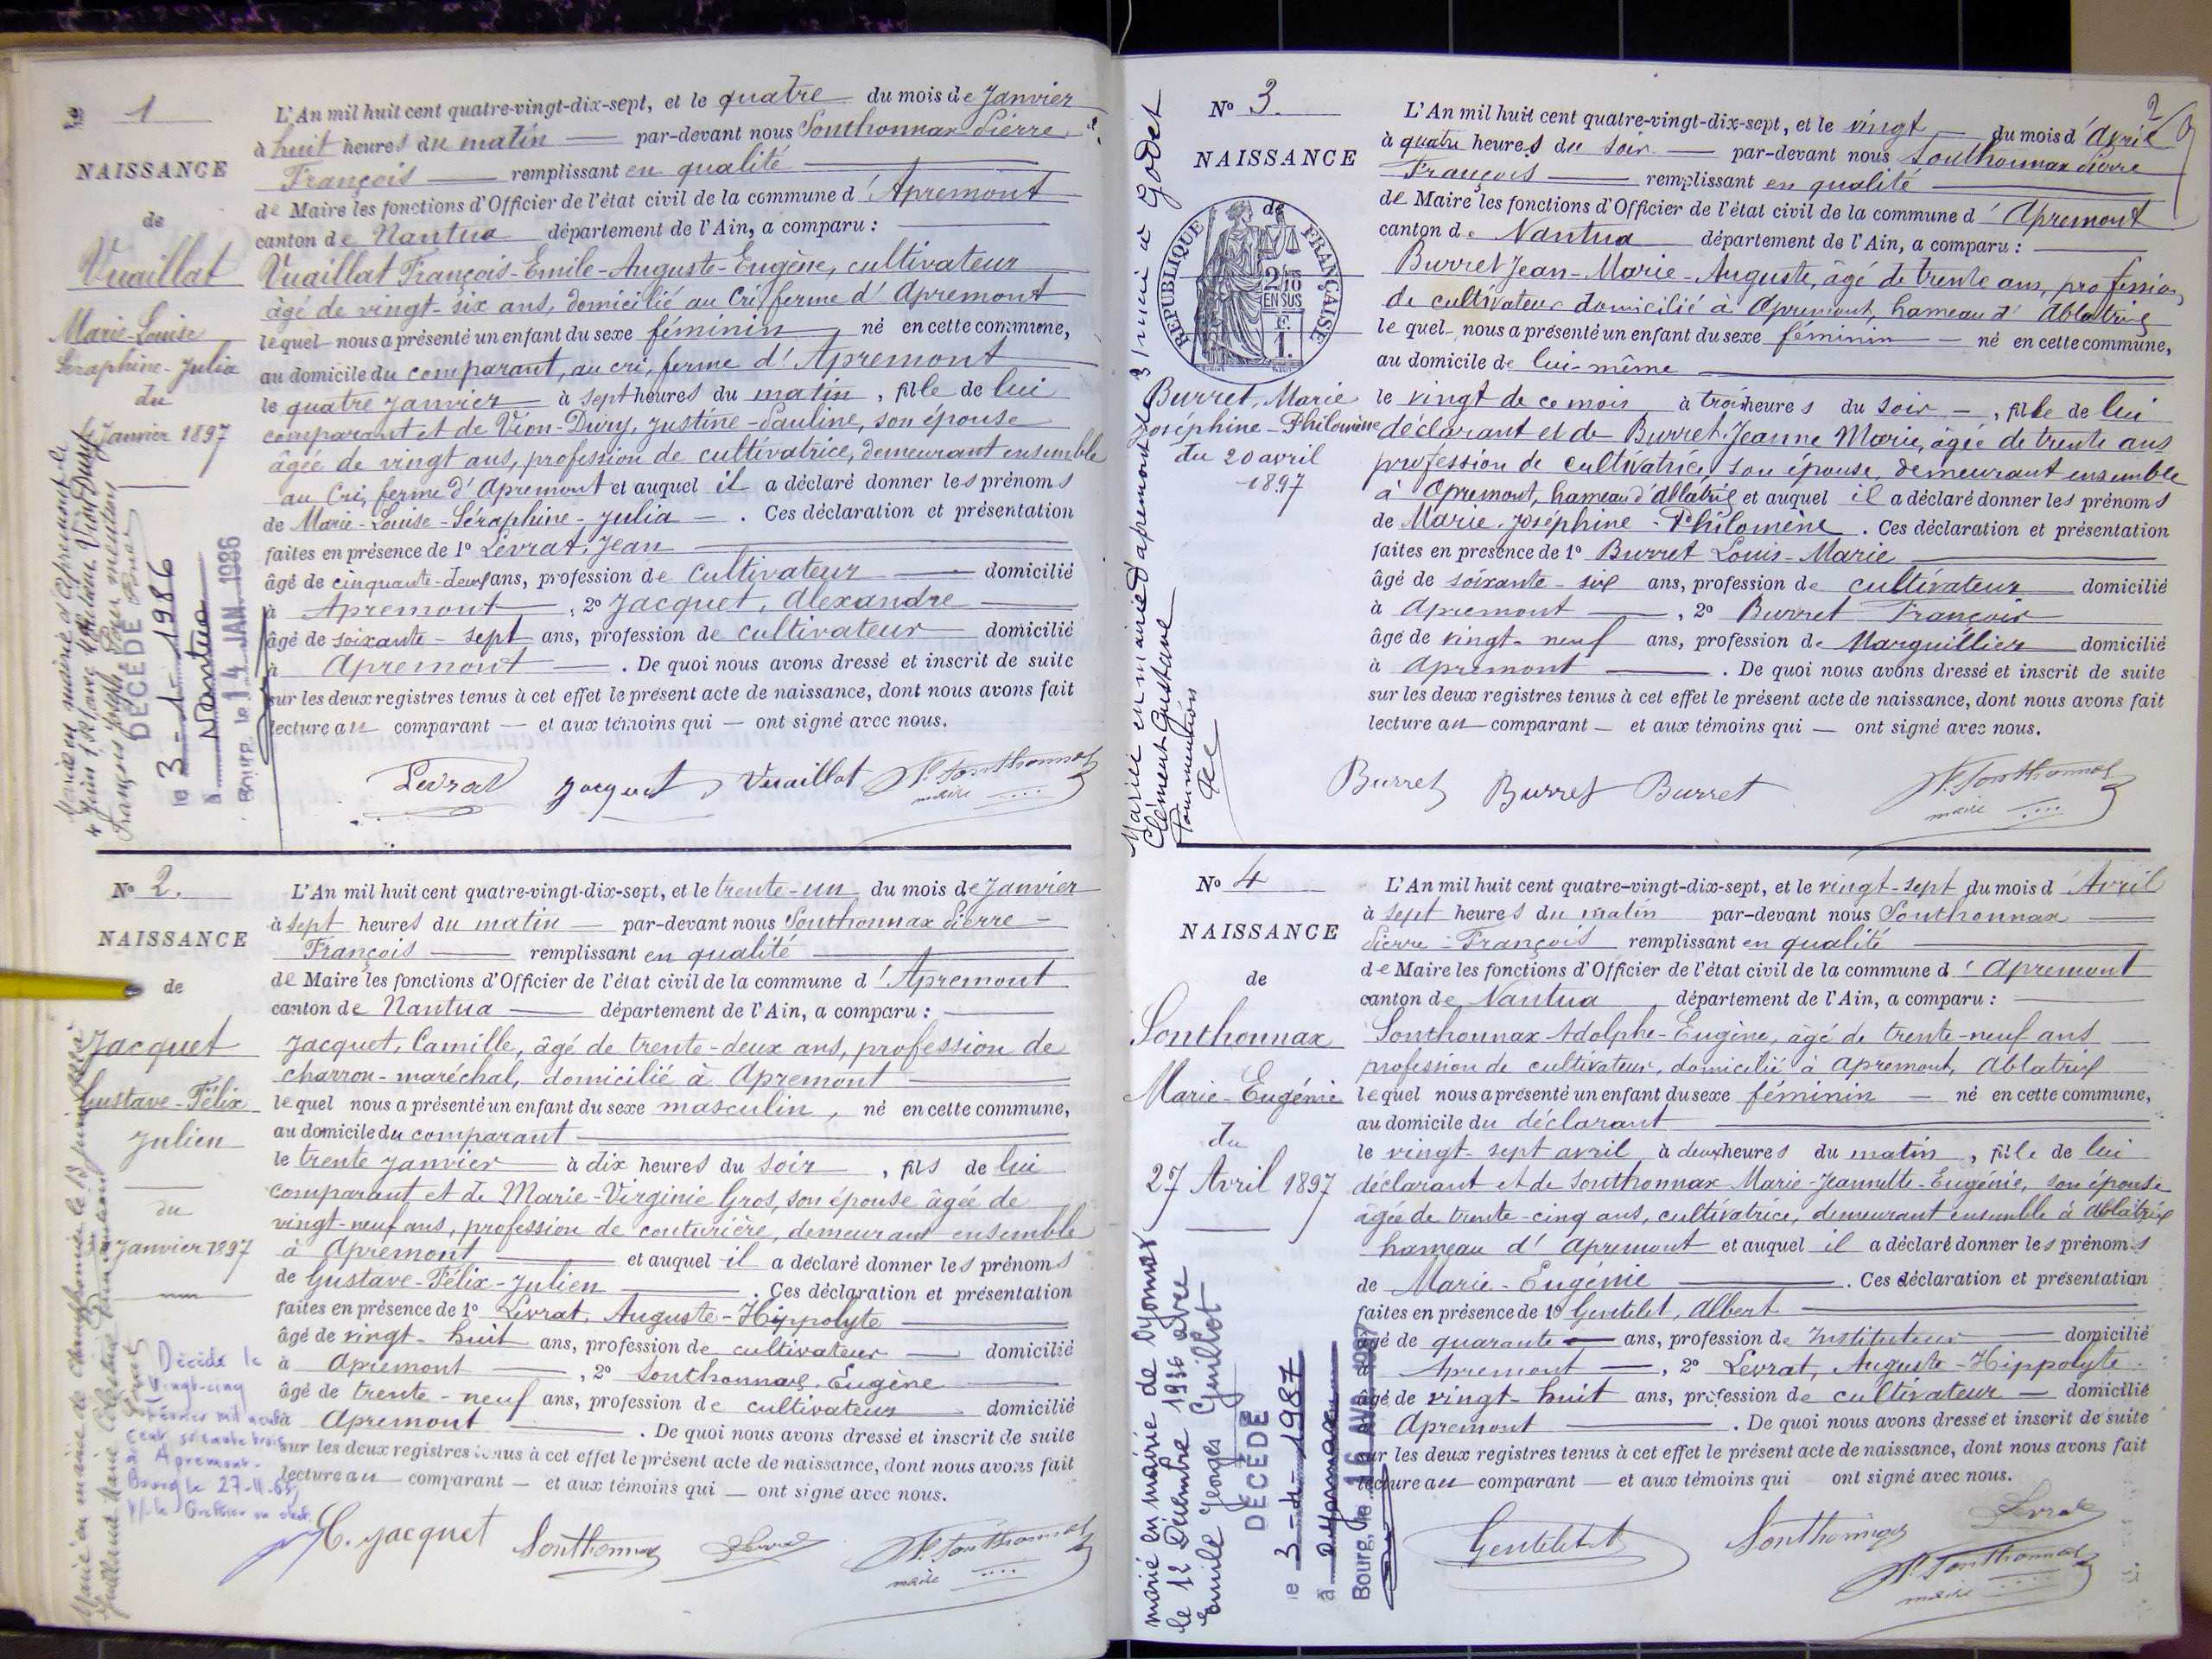 1
NAISSANCE
de
Vuaillat
Marie-Louise
Séraphine-Julia
du
4 Janvier 1897
L'An mil huit cent quatre-vingt-dix-sept, et le quatre du mois de Janvier
à huit heures du matin — par-devant nous Sonthonnax Pierre
François — remplissant en qualité
de Maire les fonctions d'Officier de l'état civil de la commune d'Apremont
canton de Nantua département de l'Ain, a comparu :
Vuaillat François-Emile-Auguste-Eugène, cultivateur
âgé de vingt-six ans, domicilié au Cri, ferme d'Apremont
lequel nous a présenté un enfant du sexe féminin, né en cette commune,
au domicile du comparant, au cri, ferme d'Apremont
le quatre janvier à sept heures du matin, fille de lui
comparant et de Vion-Dury, Justine-Pauline, son épouse
âgée de vingt ans, profession de cultivatrice, demeurant ensemble
au Cri, ferme d'Apremont et auquel il a déclaré donner les prénoms
de Marie-Louise-Séraphine-Julia — . Ces déclaration et présentation
faites en présence de 1º Levrat, Jean
âgé de cinquante-deux ans, profession de cultivateur — domicilié
à Apremont — , 2º Jacquet, Alexandre
âgé de soixante-sept ans, profession de cultivateur domicilié
à Apremont — . De quoi nous avons dressé et inscrit de suite
sur les deux registres tenus à cet effet le présent acte de naissance, dont nous avons fait
lecture au comparant — et aux témoins qui — ont signé avec nous.
Levrat Jacquet Vuaillat P. Sonthonnax
maire
Marié en mairie d'Apremont le
4 Juin
Vion Dury
François Joseph
DÉCÉDÉ
le 3-1-1986
à Nantua
Bourg, le 14 JAN. 1986
Nº 2.
NAISSANCE
de
Jacquet
Gustave-Félix
Julien
du
30 Janvier 1897
L'An mil huit cent quatre-vingt-dix-sept, et le trente-un du mois de Janvier
à sept heures du matin — par-devant nous Sonthonnax Pierre —
François — remplissant en qualité
de Maire les fonctions d'Officier de l'état civil de la commune d'Apremont
canton de Nantua — département de l'Ain, a comparu :
Jacquet, Camille, âgé de trente-deux ans, profession de
charron-maréchal, domicilié à Apremont
lequel nous a présenté un enfant du sexe masculin, né en cette commune,
au domicile du comparant
le trente janvier — à dix heures du soir, fils de lui
comparant et de Marie-Virginie Gros, son épouse âgée de
vingt-neuf ans, profession de couturière, demeurant ensemble
à Apremont — et auquel il a déclaré donner les prénoms
de Gustave-Félix-Julien — . Ces déclaration et présentation
faites en présence de 1º Levrat, Auguste-Hippolyte
âgé de vingt-huit ans, profession de cultivateur — domicilié
à Apremont — , 2º Sonthonnax, Eugène
âgé de trente-neuf ans, profession de cultivateur domicilié
à Apremont — . De quoi nous avons dressé et inscrit de suite
sur les deux registres tenus à cet effet le présent acte de naissance, dont nous avons fait
lecture au comparant — et aux témoins qui — ont signé avec nous.
C. Jacquet Sonthonnax Levrat P. Sonthonnax
maire
Marié en mairie de Champfromier le 13 juin
Décédé le
Vingt-cinq
Février mil neuf
cent soixante trois
à Apremont
Bourg le 27-11-63
2
Nº 3.
NAISSANCE
de
RÉPUBLIQUE FRANÇAISE
2/10
EN SUS
1 F.
Burret, Marie
Joséphine-Philomène
du 20 avril
1897
L'An mil huit cent quatre-vingt-dix-sept, et le vingt — du mois d'Avril
à quatre heures du soir — par-devant nous Sonthonnax Pierre
François — remplissant en qualité
de Maire les fonctions d'Officier de l'état civil de la commune d'Apremont
canton de Nantua département de l'Ain, a comparu :
Burret Jean-Marie-Auguste, âgé de trente ans, profession
de cultivateur domicilié à Apremont, hameau d'Ablatrix
lequel nous a présenté un enfant du sexe féminin — né en cette commune,
au domicile de lui-même
le vingt de ce mois à trois heures du soir — , fille de lui
déclarant et de Burret, Jeanne Marie, âgée de trente ans
profession de cultivatrice, son épouse, demeurant ensemble
à Apremont, hameau d'Ablatrix et auquel il a déclaré donner les prénoms
de Marie-Joséphine-Philomène . Ces déclaration et présentation
faites en présence de 1º Burret Louis-Marie
âgé de soixante-six ans, profession de cultivateur domicilié
à Apremont — , 2º Burret François
âgé de vingt-neuf ans, profession de Marguillier domicilié
à Apremont — . De quoi nous avons dressé et inscrit de suite
sur les deux registres tenus à cet effet le présent acte de naissance, dont nous avons fait
lecture au comparant — et aux témoins qui — ont signé avec nous.
Burret Burret Burret P. Sonthonnax
maire
Mariée en mairie d'apremont le 3 à Godet
Clément Gustave
Pour mention
Nº 4
NAISSANCE
de
Sonthonnax
Marie-Eugénie
du
27 Avril 1897
L'An mil huit cent quatre-vingt-dix-sept, et le vingt-sept du mois d'Avril
à sept heures du matin par-devant nous Sonthonnax
Pierre-François remplissant en qualité
de Maire les fonctions d'Officier de l'état civil de la commune d'Apremont
canton de Nantua, département de l'Ain, a comparu :
Sonthonnax Adolphe-Eugène, âgé de trente-neuf ans
profession de cultivateur, domicilié à Apremont, Ablatrix
lequel nous a présenté un enfant du sexe féminin — né en cette commune,
au domicile du déclarant
le vingt-sept avril à deux heures du matin, fille de lui
déclarant et de Sonthonnax Marie-Jeannette-Eugénie, son épouse
âgée de trente-cinq ans, cultivatrice, demeurant ensemble à Ablatrix
hameau d'Apremont et auquel il a déclaré donner les prénoms
de Marie-Eugénie — . Ces déclaration et présentation
faites en présence de 1º Gentelet, Albert
âgé de quarante — ans, profession de Instituteur domicilié
à Apremont — , 2º Levrat, Auguste-Hippolyte
âgé de vingt-huit ans, profession de cultivateur — domicilié
à Apremont — . De quoi nous avons dressé et inscrit de suite
sur les deux registres tenus à cet effet le présent acte de naissance, dont nous avons fait
lecture au comparant — et aux témoins qui ont signé avec nous.
Gentelet A Sonthonnax Levrat
P. Sonthonnax
maire
marié en mairie de Oyonnax
le 12 Décembre 1936 avec
Emile Georges Guillot
DÉCÉDÉ
le 3-4-1987
à Oyonnax
Bourg, le 16 AVR. 1987